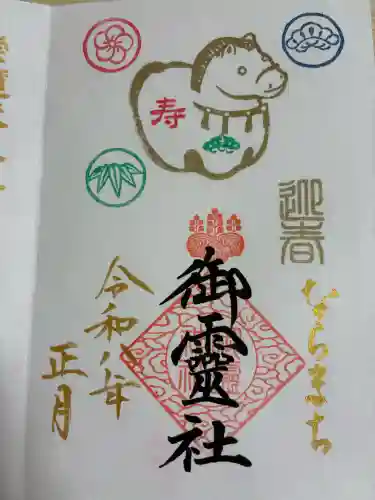 寿
迎春
ならまち
御靈社
令和八年
正月